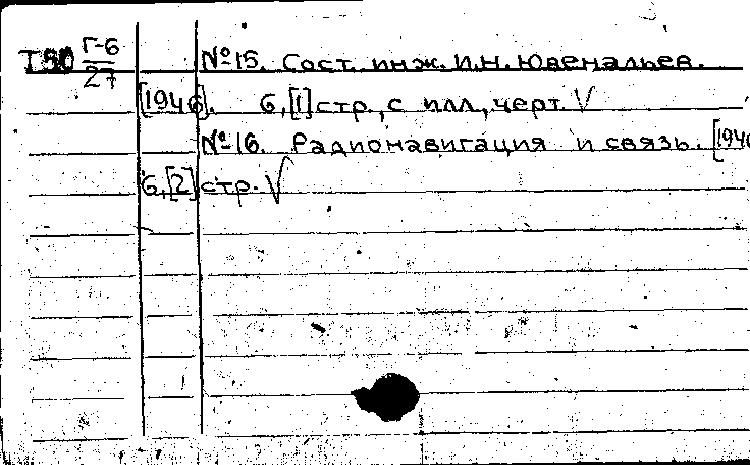 Т80 Г-6 №15. Сост. инж. И.Н. Ювенальев.
27
[1946]. 6,[1]стр., с илл., черт. √
№16. Радионавигация и связь. [1946
6,[2]стр. √